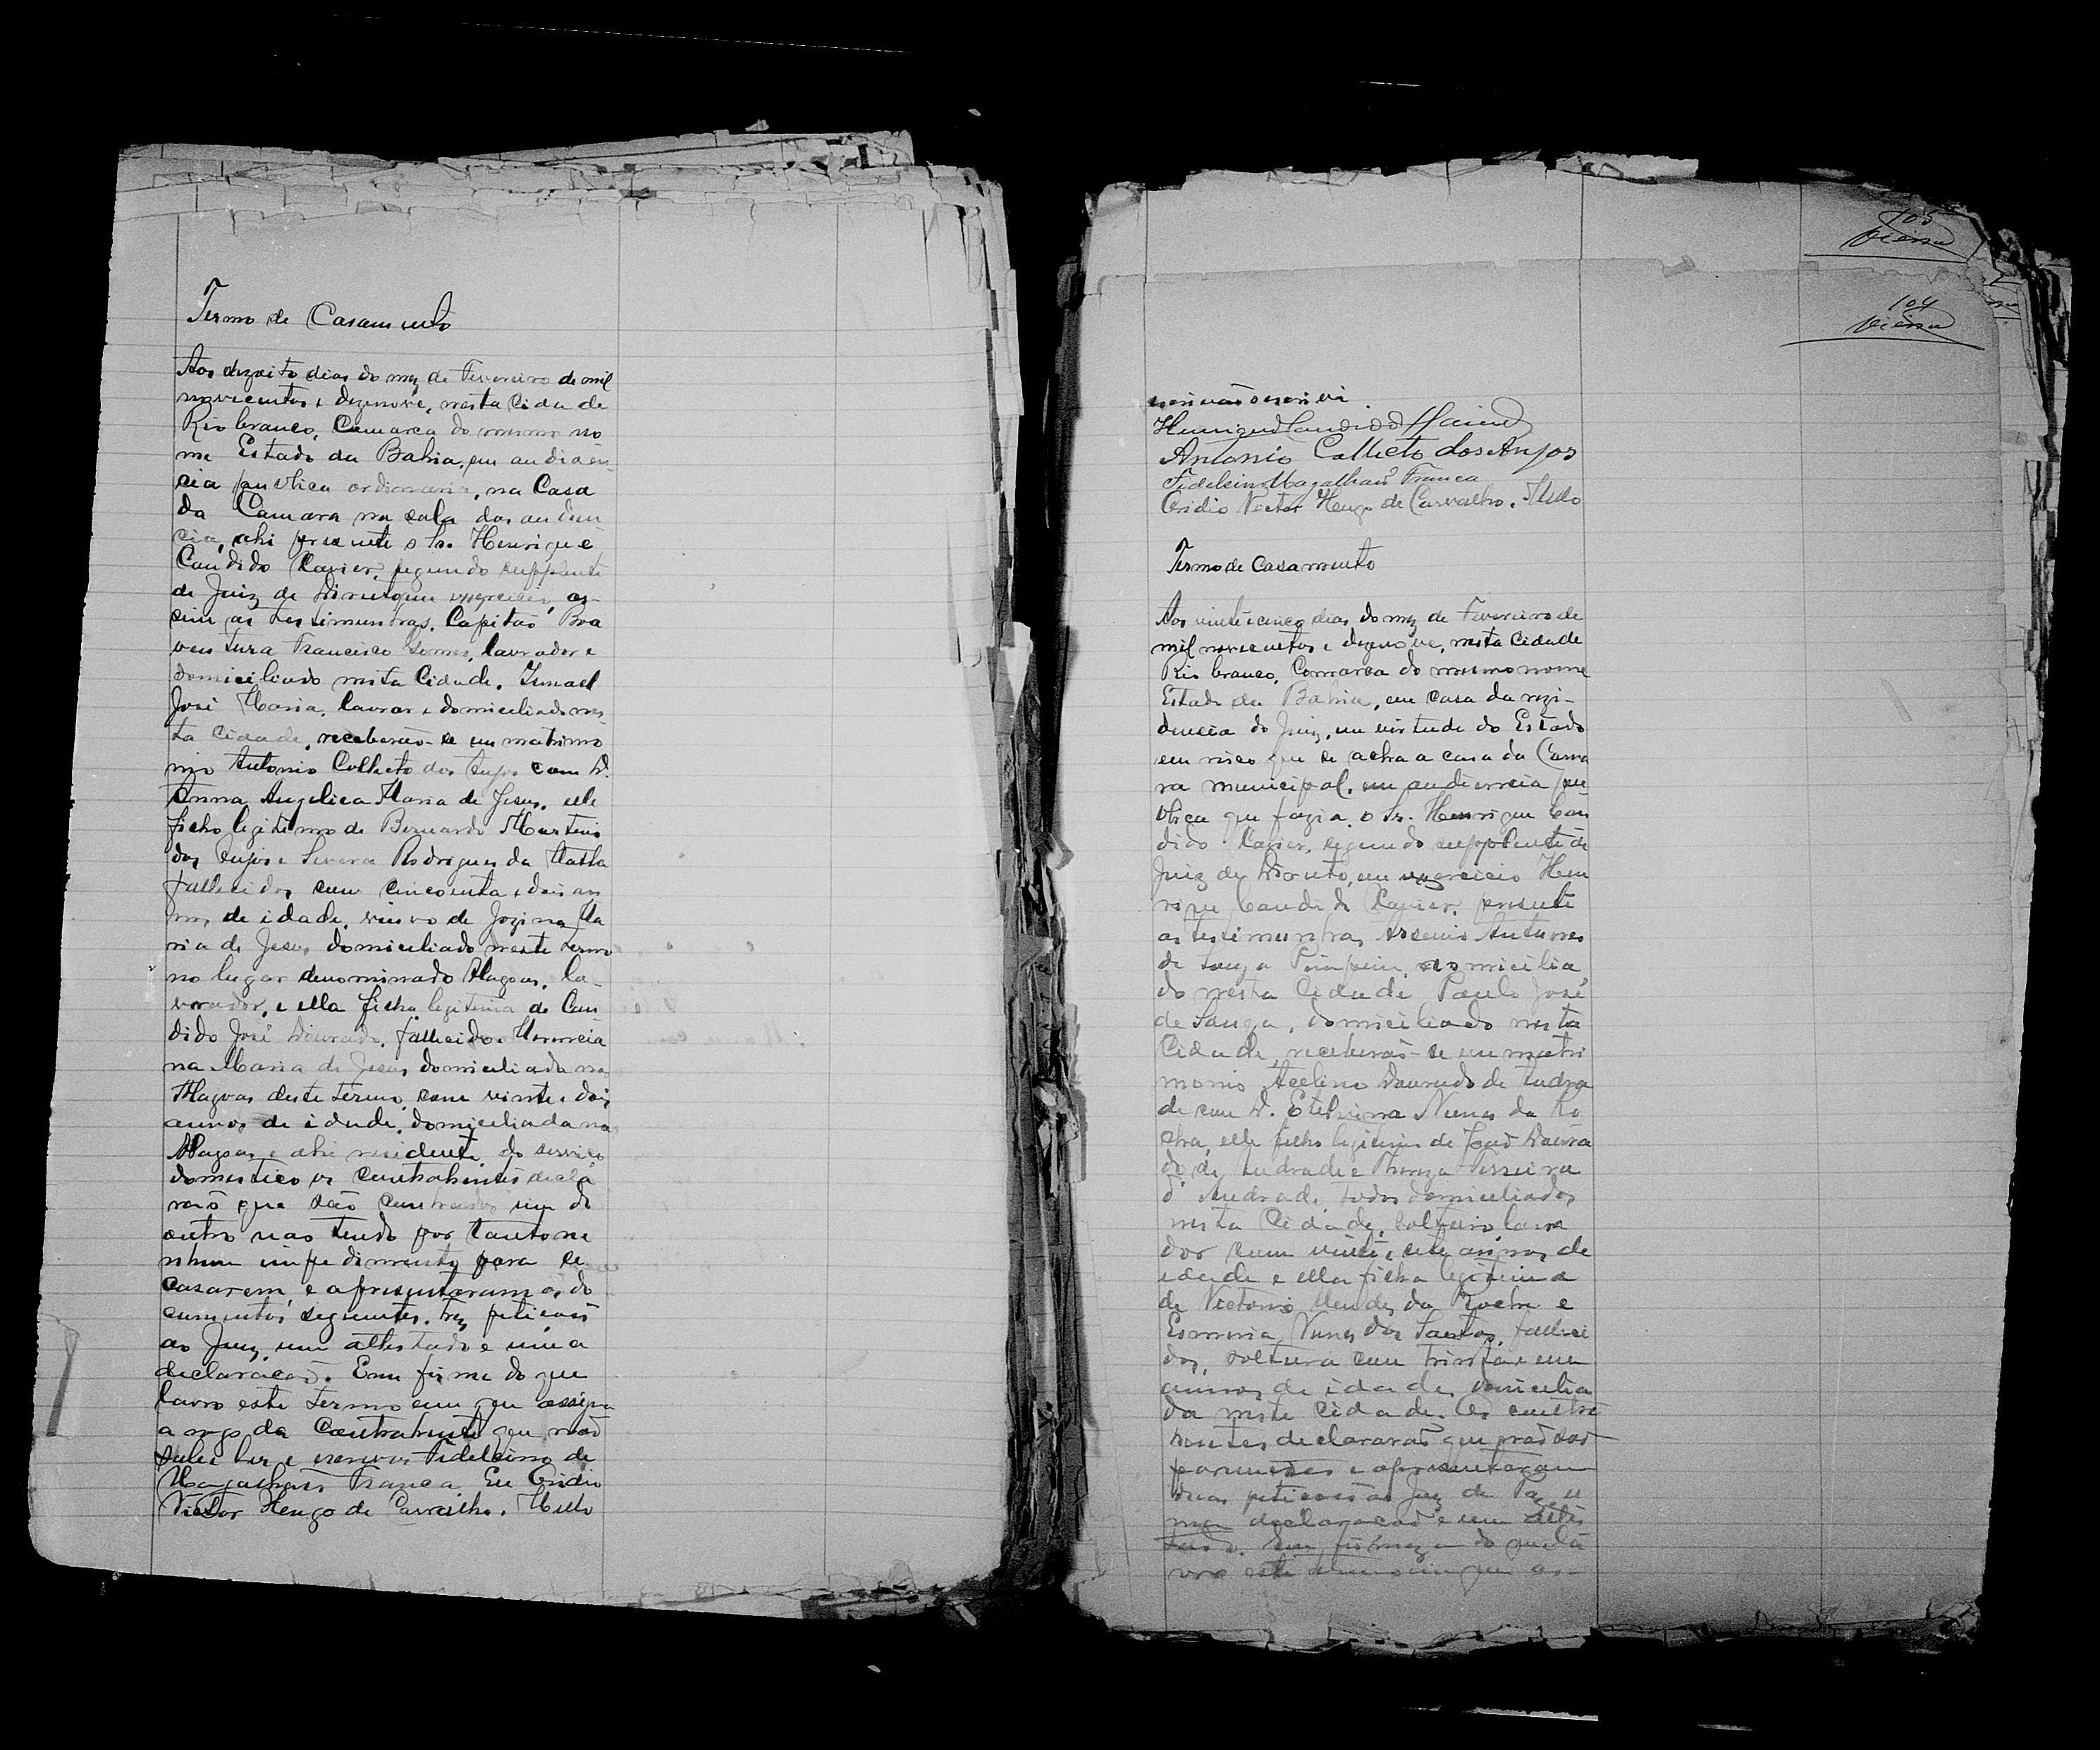 Termo de Casamento
Aos dezoito dias do mez de Fevereiro de mil
novecentos e dezenove, nesta Cidade
Rio branco, Comarca do mesmo no
me Estado da Bahia, em audien
cia publica ordinaria, na Casa
da Camara na sala das audien
cia, ahi presente o Sr. Henrique
Candido Xavier, segundo supplente
de Juiz de Direito em exercicio, as
cim as testimunhas, Capitão Boa
ventura Francisco Gomes, lavrador e
domiciliado nesta Cidade, Ismael
José Maria, lavrar e domiciliado nes
ta Cidade, receberão-se em matrimo
nio Antonio Colleto dos Anjos com D.
Anna Angelica Maria de Jesus, elle
filho legitimo de Bernardo Martins
dos Anjos e Severa Rodrigues da Matta
fallecidos, com cincoenta e dois an
nos de idade, viuvo de Jozina Ma
ria de Jesus domiciliado neste termo
no lugar denominado Alagoas, la
vrador, e ella filha legitima de Can
dido José Dourado, fallecido e
na Maria de Jesus domiciliada nas
Alagoas deste termo, com vinte e dois
annos de idade, domiciliada nas
Alagoas e ahi residente, do serviço
domestico os contrahentes decla
rarão que são um do
outro nao tendo por tanto ne
nhum impedimento para se
casarem, e apresentaram os do
cumentos seguintes, tres peticois
ao Juiz, um attestado e uma
declaracaõ. Em firme do que
lavro este termo em que assigna
a rogo da Contrahente que naõ
sabe ler e escrever Fidelcino de
Magalhaẽs Franca Eu Cridio
Victor Hugo de Carvalho. Mello
105
Vieira
104
Vieira
escrivão o escrivi
Henrique Candido Xavier
Antonio Colleto dos Anjos
Fidelcino Magalhaẽs Franca
Cridio Victor Hugo de Carvalho. Mello
Termo de Casamento
Aos vinte e cinco dias do mez de Fevereiro de
mil novecentos e dezenove, nesta Cidade
Rio branco, Comarca do mesmo nome
Estado da Bahia, em casa da rezi-
dencia do Juiz, em virtude do Estado
em risco que se acha a casa da Cama
ra municipal, em audiencia pu
blica que fazia o Sr. Henrique Can
dido Xavier, segundo supplente de
Juiz de Direito, em exercicio Hen
rique Candido Xavier, presente
as testimunhas Arsenio Antunes
de Souza domicilia
do nesta Cidade Paulo José
de Souza, domiciliado nesta
Cidade, receberaõ-se em matri
monio Acelino Dourado de Andra
de com D. Etelvina Nunes da Ro
cha, elle filho legitimo de Joaõ Doura
do de Andrade e Thereza Ferreira
d'Andrade, todos domiciliados
nesta Cidade, solteiro, lavra
dor com vinte e sete annos de
idade e ella filha legitima
de Victorio Mendes da Rocha e
Esmeria Nunes dos Santos, falleci
dos, solteira com trinta e um
annos de idade, domicilia
da nesta Cidade. Os contra
hentes declararaõ que naõ saõ
parentes e apresentaraõ
duas peticois ao Juiz de Paz, u
ma declaracaõ e um attes
tado. Em firmeza do que la
vro este termo em que as-